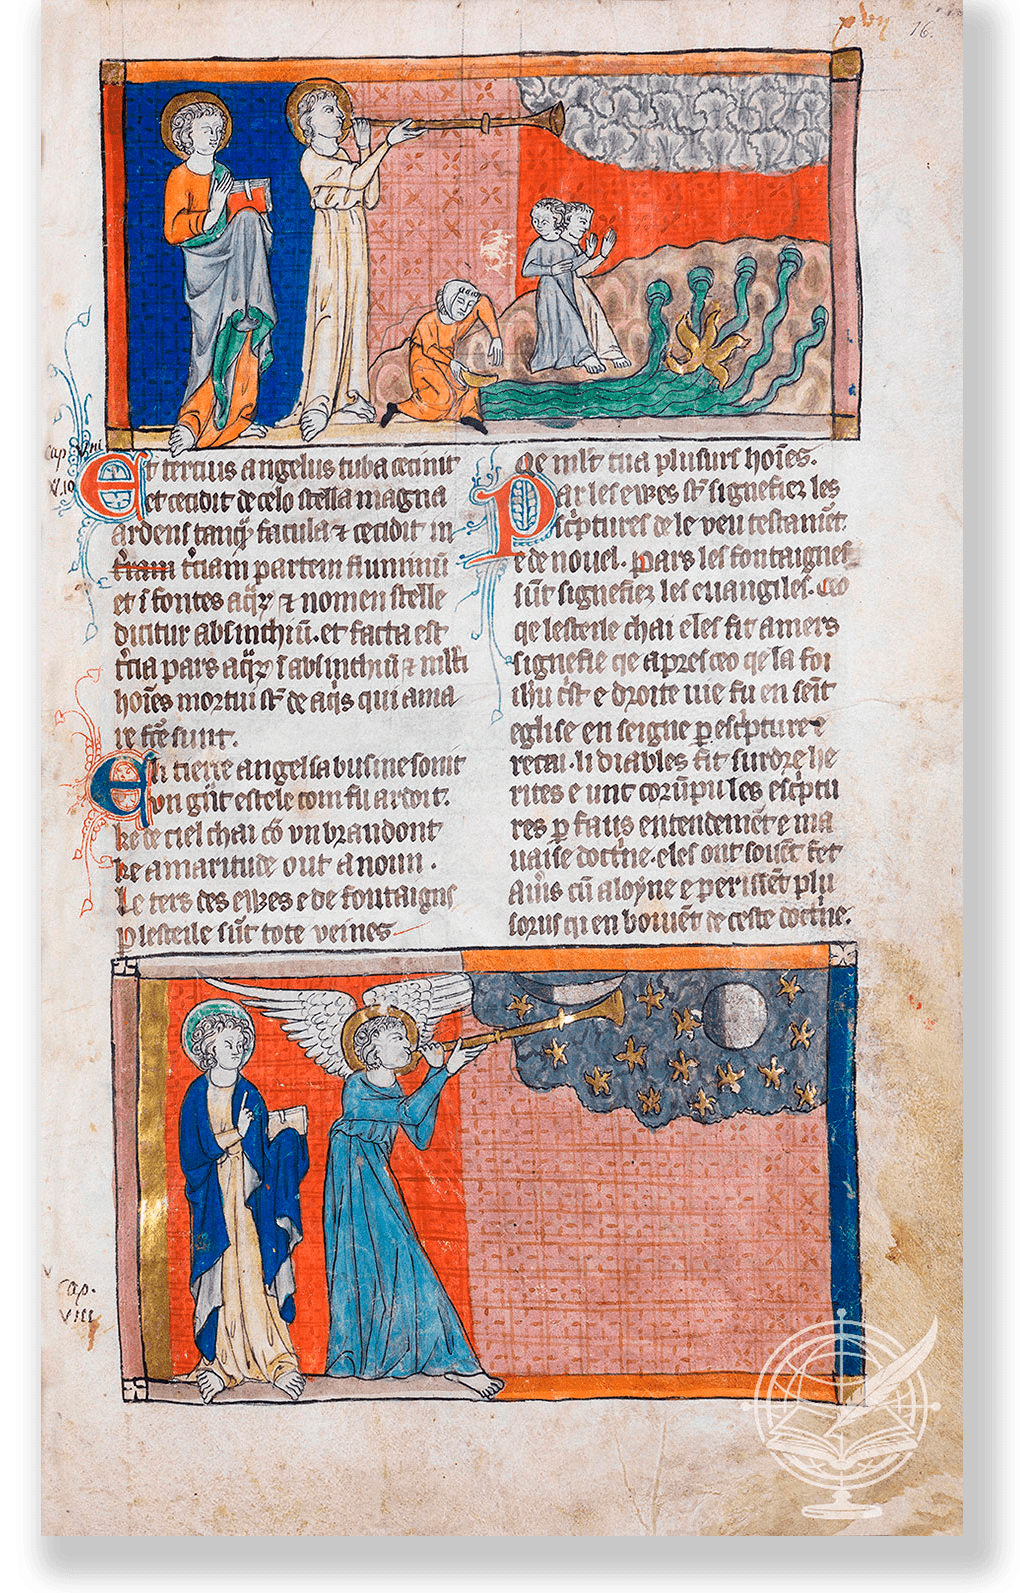 xvii 16.
Cap. viii
V. 10
Et tercius angelus tuba cecinit
et cecidit de celo stella magna
ardens tanq̄ facula ⁊ cecidit in
t̄ram t̄ciam partem fluuiniū
et ī fontes aq̄ꝝ ⁊ nomen stelle
dicitur absinthiū. et facta est
t̄cia pars aq̄ꝝ ī absinthiū ⁊ ml̄ti
hoīes mortui st̄ de aq̄s qui ama
re fc̄e sunt.
Eli tierz angels a busine sonit
vn gn̄t estele com fu ardoit.
ke de ciel chai cō vn brandont
ke amaritude out a noun.
Le ters des ewes e de fontaigns
p lesteile sūt tote veines
Qe ml̄t tua plusurs hoīes.
Par les ewes st̄ signefiez les
sc̄ptures de le veu testamēt
e de nouel. Pars les fontaignes
sūt signefiez les euangiles. Ceo
qe lesteile chai eles fit amers
signefie qe apres ceo qe la foi
ihū c̄st e droite uie fu en seīt
eglise en seigne p esc̄pture
recut. li diables fit surdre he
rites e unt corūpu les esc̄ptu
res p faus entendemēt e ma
uaise doctīne. eles ont souēt fet
am̄s cū aloyne e perissēt plu
sorus qi en boiuēt de ceste doctīne.
Cap.
VIII